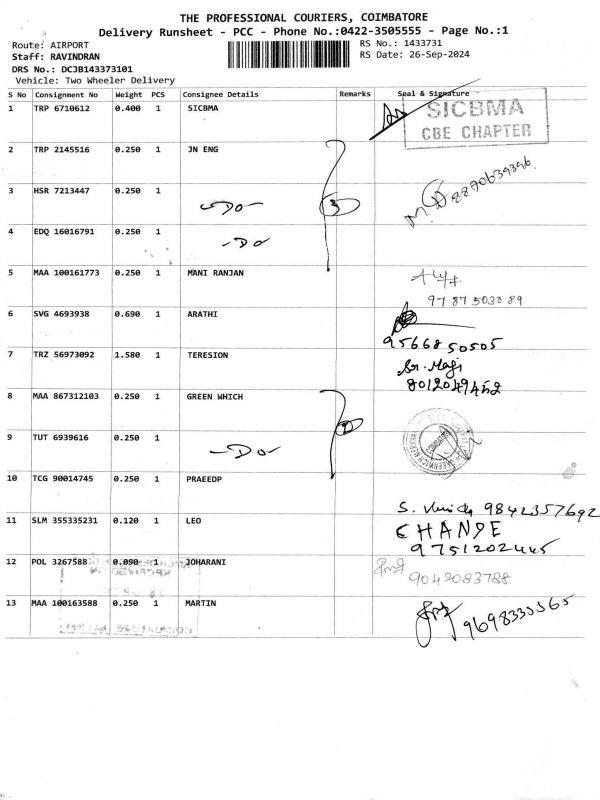 THE PROFESSIONAL COURIERS, COIMBATORE
Delivery Runsheet - PCC - Phone No.:0422-3505555 - Page No.:1
Route: AIRPORT
RS No.: 1433731
Staff: RAVINDRAN
RS Date: 26-Sep-2024
DRS No.: DCJB143373101
Vehicle: Two Wheeler Delivery
S No Consignment No Weight PCS Consignee Details Remarks Seal & Signature
1 TRP 6710612 0.400 1 SICBMA
SICBMA
CBE CHAPTER
2 TRP 2145516 0.250 1 JN ENG
3 HSR 7213447 0.250 1 -Do- 3 8870639396
4 EDQ 16016791 0.250 1 -Do-
5 MAA 100161773 0.250 1 MANI RANJAN
9787503089
6 SVG 4693938 0.690 1 ARATHI
9566850505
7 TRZ 56973092 1.580 1 TERESION
8012049452
8 MAA 867312103 0.250 1 GREEN WHICH
9 TUT 6939616 0.250 1 -Do-
10 TCG 90014745 0.250 1 PRAEEDP
9842357692
11 SLM 355335231 0.120 1 LEO
9751202445
12 POL 3267588 0.090 1 JOHARANI
9042083788
13 MAA 100163588 0.250 1 MARTIN
9698335565